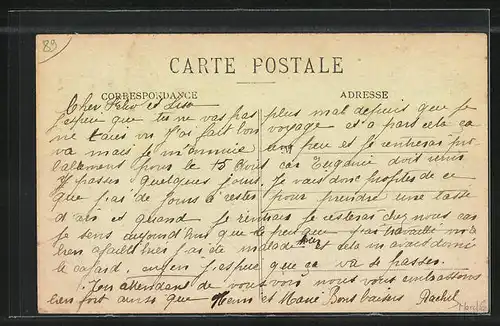 89
CARTE POSTALE
CORRESPONDANCE
ADRESSE
Cher
J'espère que tu ne vas pas plus mal depuis que je
ne t'ai vu J'ai fait bon voyage et à part cela ça
va mais je m'ennuie un peu et je rentrerai pro-
bablement pour le 15 Août car Eugénie doit venir
y passer quelques jours. Je vais donc profiter de ce
que j'ai de jours à rester pour prendre une tasse
d'air et quand je rentrerai je resterai chez nous car
je sens aujourd'hui que le peu que j'ai travaillé m'a
bien affaibli hier j'ai été malade et cela m'avait donné
le cafard enfin j'espère que ça va se passer.
En attendant de vous voir nous vous embrassons
bien fort ainsi que Henri et Bons baisers Rachel